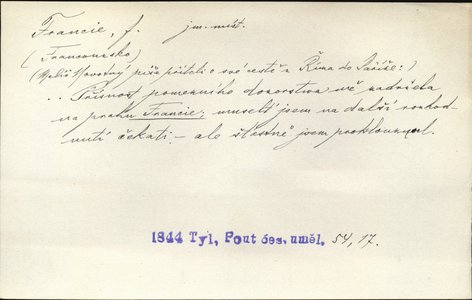 Francie, f. jm. míst.
(Francouzsko)
(Malíř Novotný píše příteli o své cestě z Říma do Paříže:)
.. Přísnost pomezního dozorstva mě zadržela
na prahu Francie; muselť jsem na další rozhod-
nutí čekati – ale šťastně jsem proklouznul.
1844 Tyl, Pout čes. uměl. 54, 17.